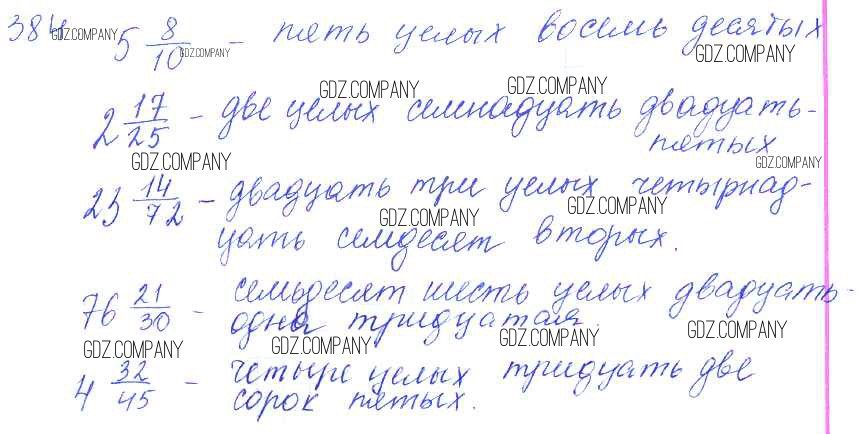 384. 5 8/10 – пять целых восемь десятых
2 17/25 – две целых семнадцать двадцать-
пятых
23 14/72 – двадцать три целых четырнад-
цать семдесят вторых.
76 21/30 – семьдесят шесть целых двадцать-
одна тридцатая.
4 32/45 – четыре целых тридцать две
сорок пятых.
GDZ.COMPANY
GDZ.COMPANY
GDZ.COMPANY
GDZ.COMPANY
GDZ.COMPANY
GDZ.COMPANY
GDZ.COMPANY
GDZ.COMPANY
GDZ.COMPANY
GDZ.COMPANY
GDZ.COMPANY
GDZ.COMPANY
GDZ.COMPANY